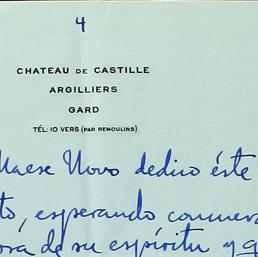 4
CHATEAU DE CASTILLE
ARGILLIERS
GARD
TÉL: 10 VERS (PAR REMOULINS)
Maese Novo dedico éste
to, esperando
de su espíritu y